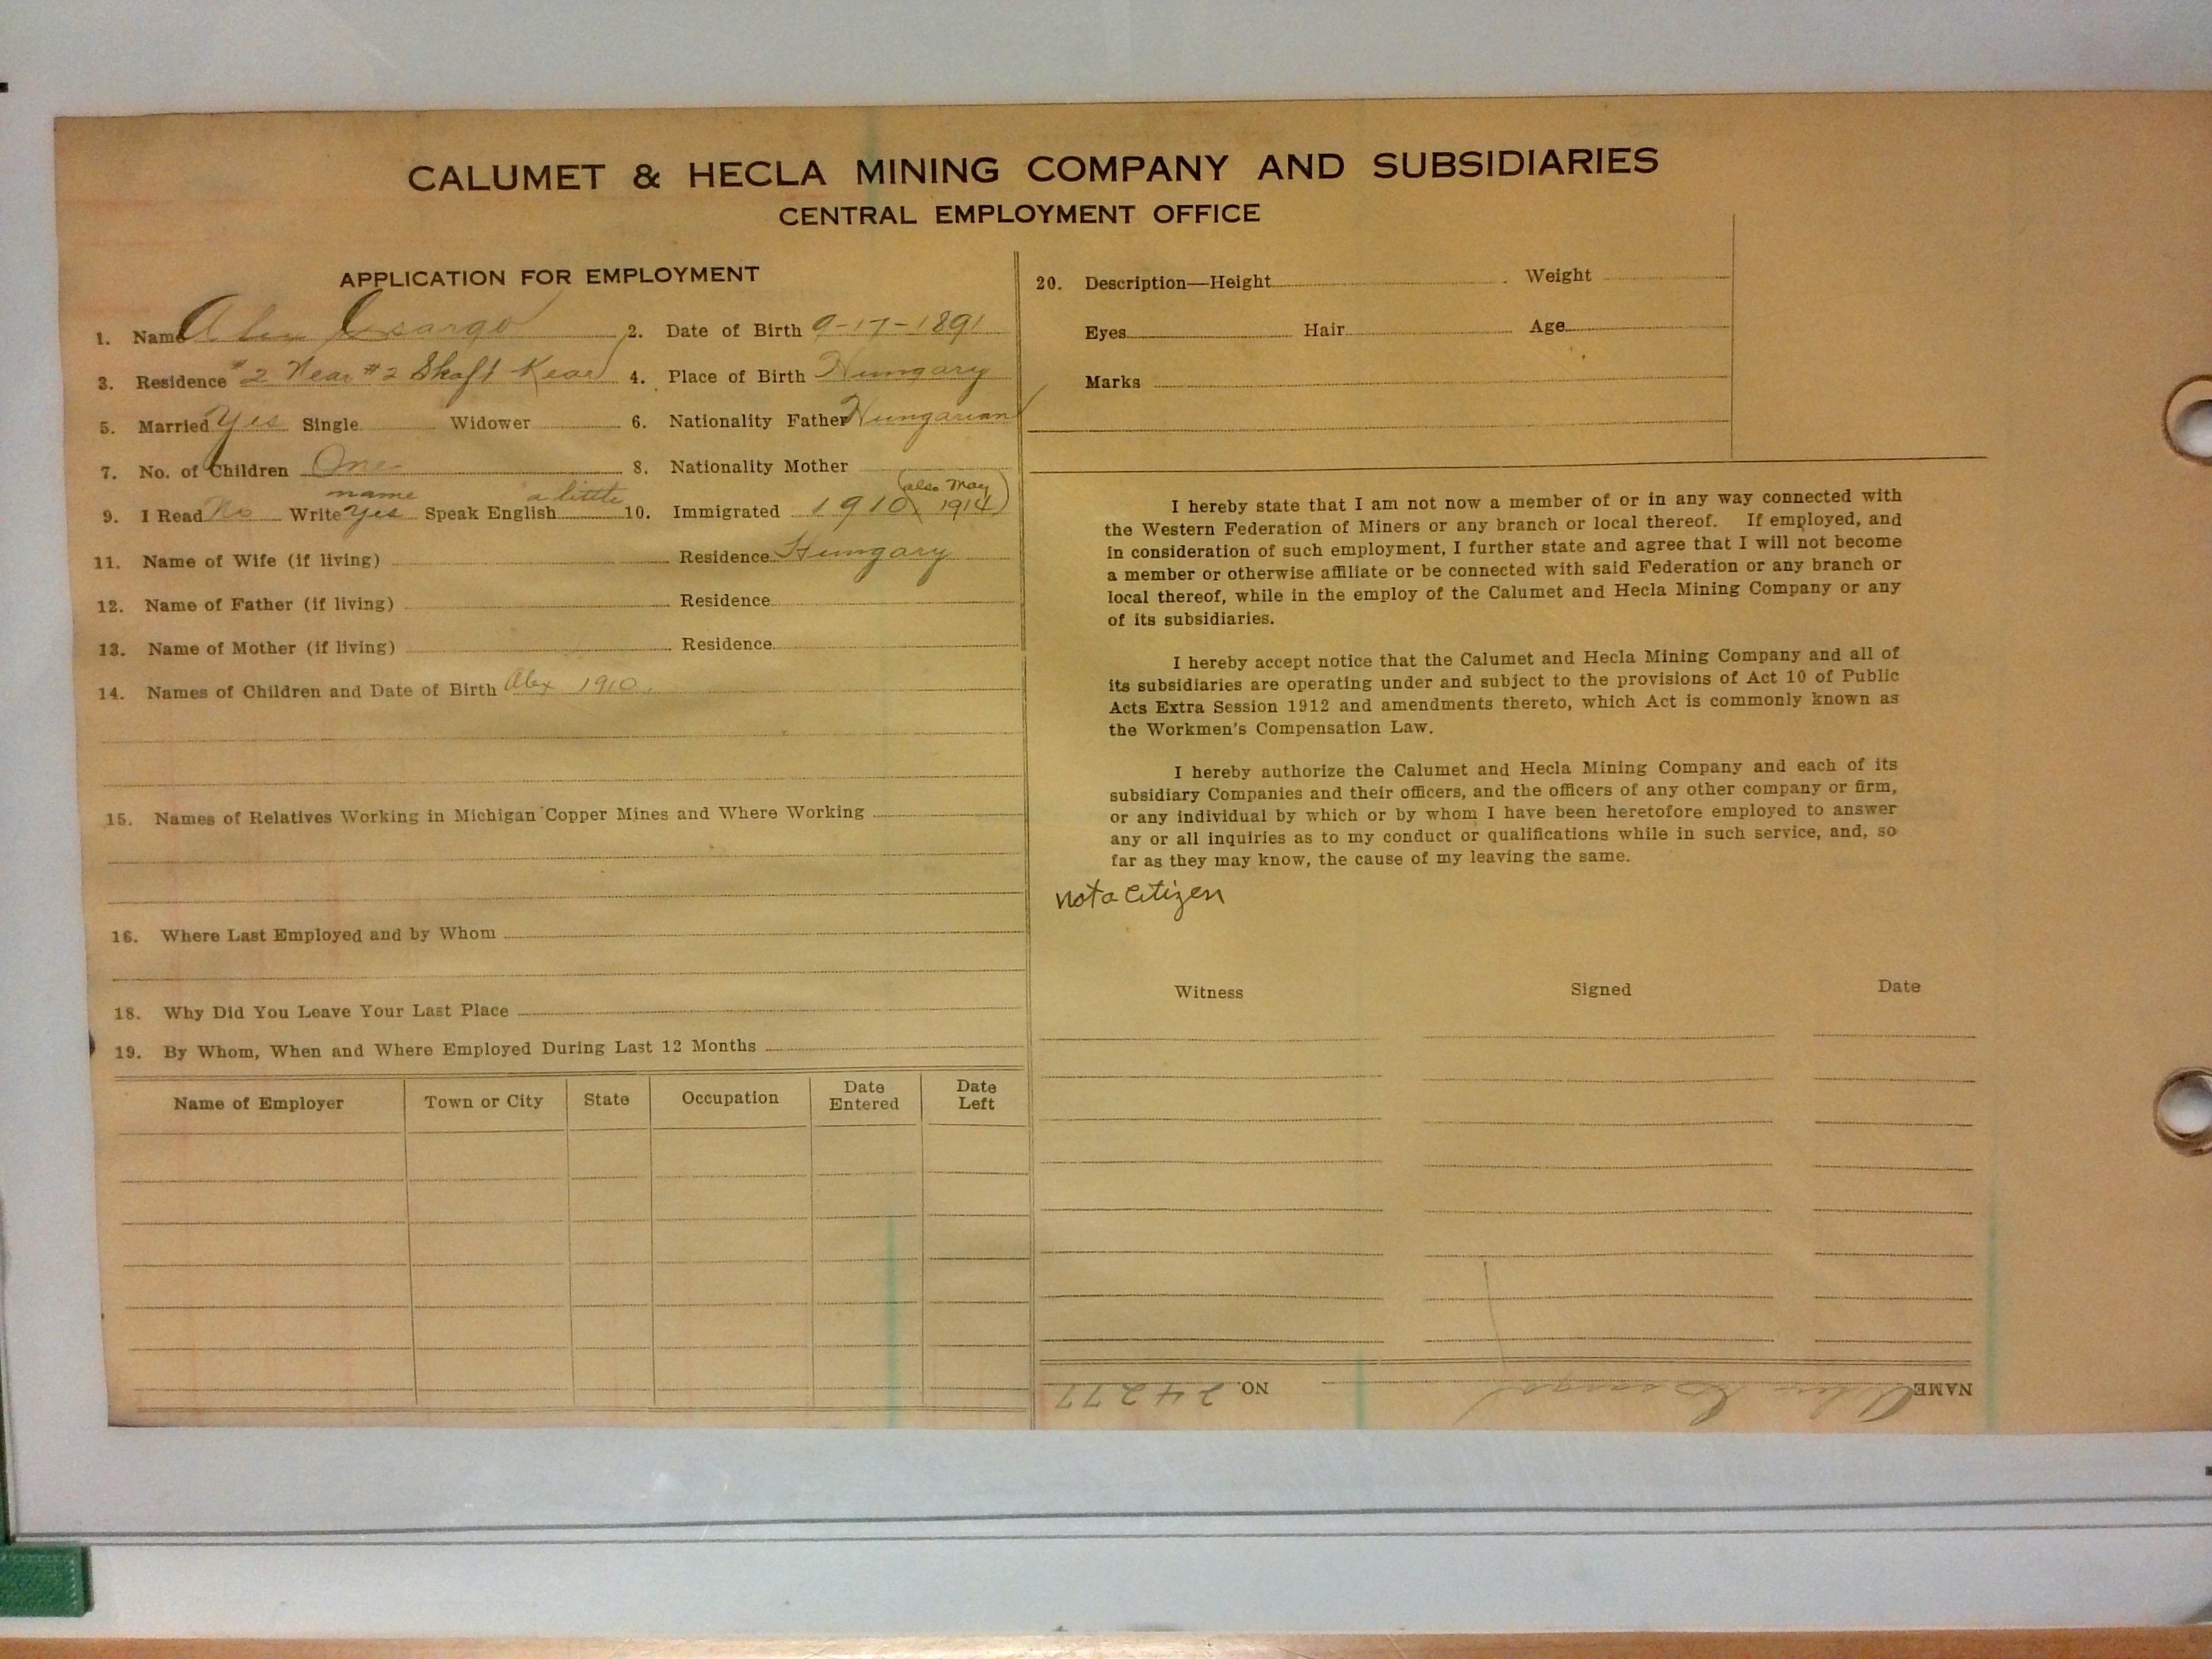 CALUMET & HECLA MINING COMPANY AND SUBSIDIARIES
CENTRAL EMPLOYMENT OFFICE
APPLICATION FOR EMPLOYMENT
1. Name Alex 2. Date of Birth 9-17-1891
3. Residence #2 Near #2 Shaft 4. Place of Birth Hungary
5. Married Yes Single Widower 6. Nationality Father Hungarian
7. No. of Children One 8. Nationality Mother
name a little (also May
9. I Read No Write yes Speak English 10. Immigrated 1910 1914)
11. Name of Wife (if living) Residence Hungary
12. Name of Father (if living) Residence
13. Name of Mother (if living) Residence
14. Names of Children and Date of Birth Alex 1910.
15. Names of Relatives Working in Michigan Copper Mines and Where Working
16. Where Last Employed and by Whom
18. Why Did You Leave Your Last Place
19. By Whom, When and Where Employed During Last 12 Months
Name of Employer Town or City State Occupation Date Entered Date Left
20. Description—Height Weight
Eyes Hair Age
Marks
I hereby state that I am not now a member of or in any way connected with
the Western Federation of Miners or any branch or local thereof. If employed, and
in consideration of such employment, I further state and agree that I will not become
a member or otherwise affiliate or be connected with said Federation or any branch or
local thereof, while in the employ of the Calumet and Hecla Mining Company or any
of its subsidiaries.
I hereby accept notice that the Calumet and Hecla Mining Company and all of
its subsidiaries are operating under and subject to the provisions of Act 10 of Public
Acts Extra Session 1912 and amendments thereto, which Act is commonly known as
the Workmen's Compensation Law.
I hereby authorize the Calumet and Hecla Mining Company and each of its
subsidiary Companies and their officers, and the officers of any other company or firm,
or any individual by which or by whom I have been heretofore employed to answer
any or all inquiries as to my conduct or qualifications while in such service, and, so
far as they may know, the cause of my leaving the same.
not a citizen
Witness Signed Date
NAME Alex NO. 24277